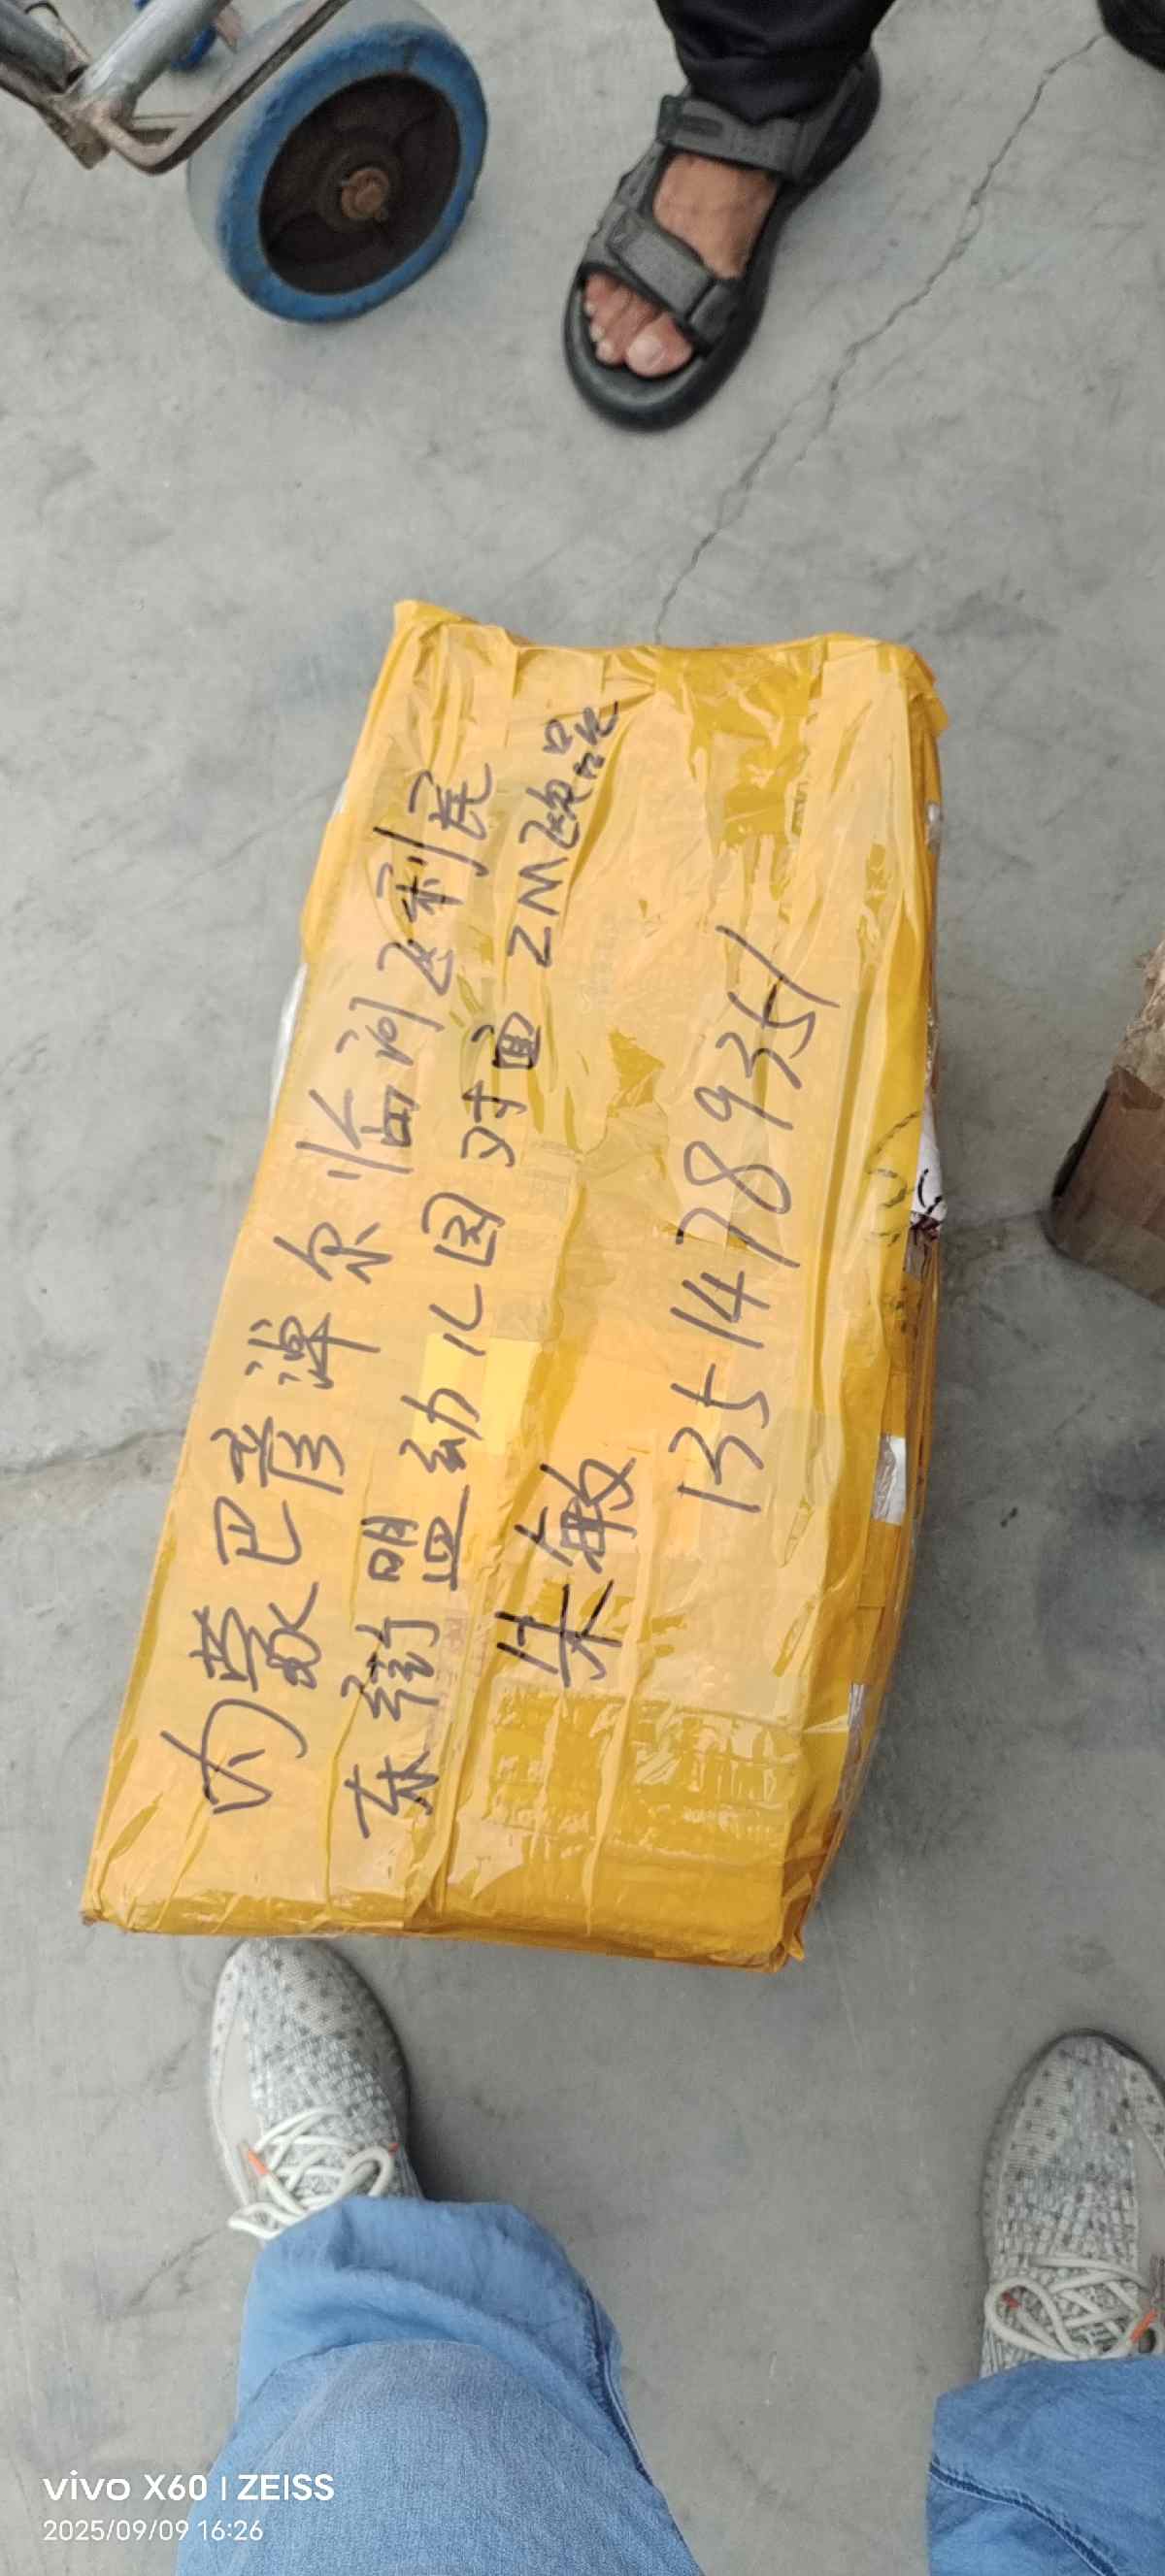 内蒙巴彦淖尔临河区利民
东街明盈幼儿园对面ZM造品
朱敏
13514789351
vivo X60 | ZEISS
2025/09/09 16:26